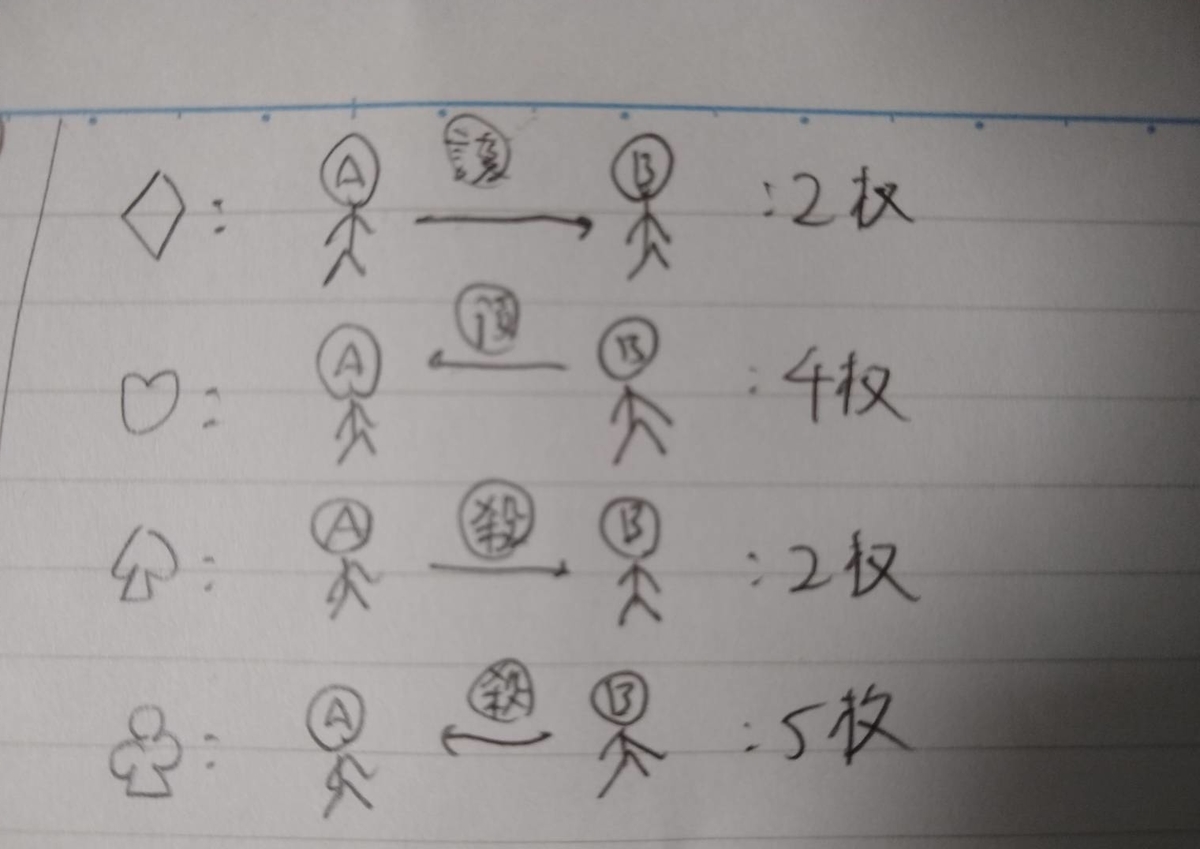 ◇: A 護 → B :2枚
♡: A ← B :4枚
♤: A 殺 → B :2枚
♧: A 殺 ← B :5枚